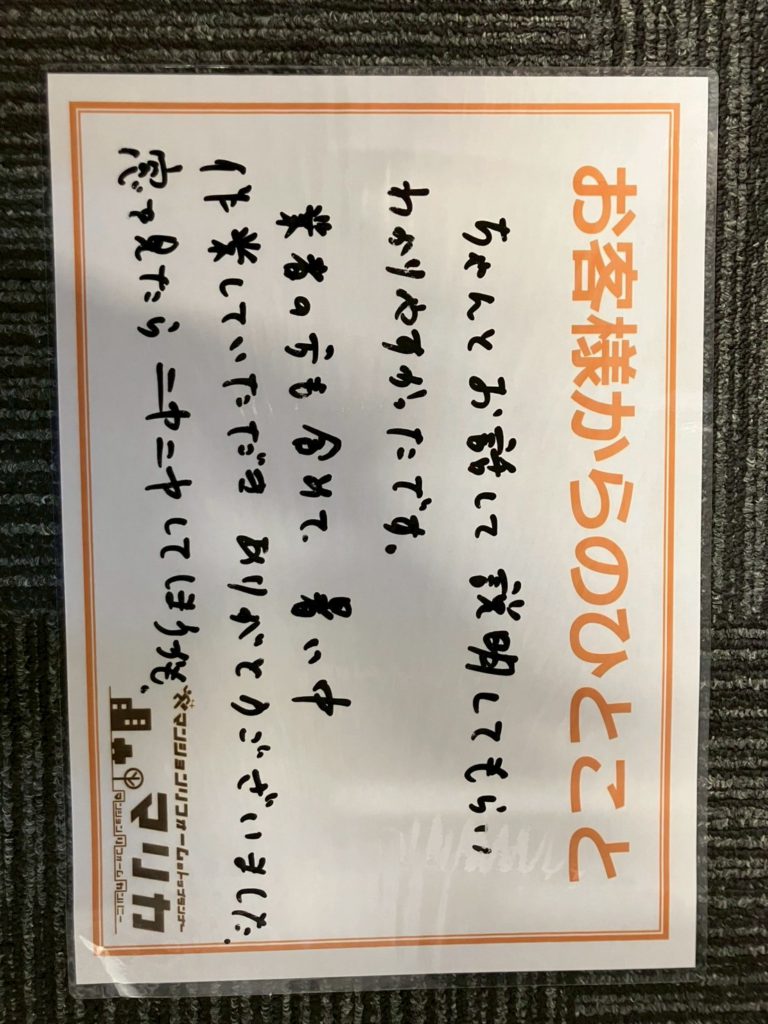 お客様からのひとこと
ちゃんとお話して説明してもらい
わかりやすかたです。
業者の方も含めて、暑い中
作業していただき ありがとうございました。
窓や見たら ニヤニヤして
マンションリフォームのトップランナー
マリカ
マンションリフォームカンパニー